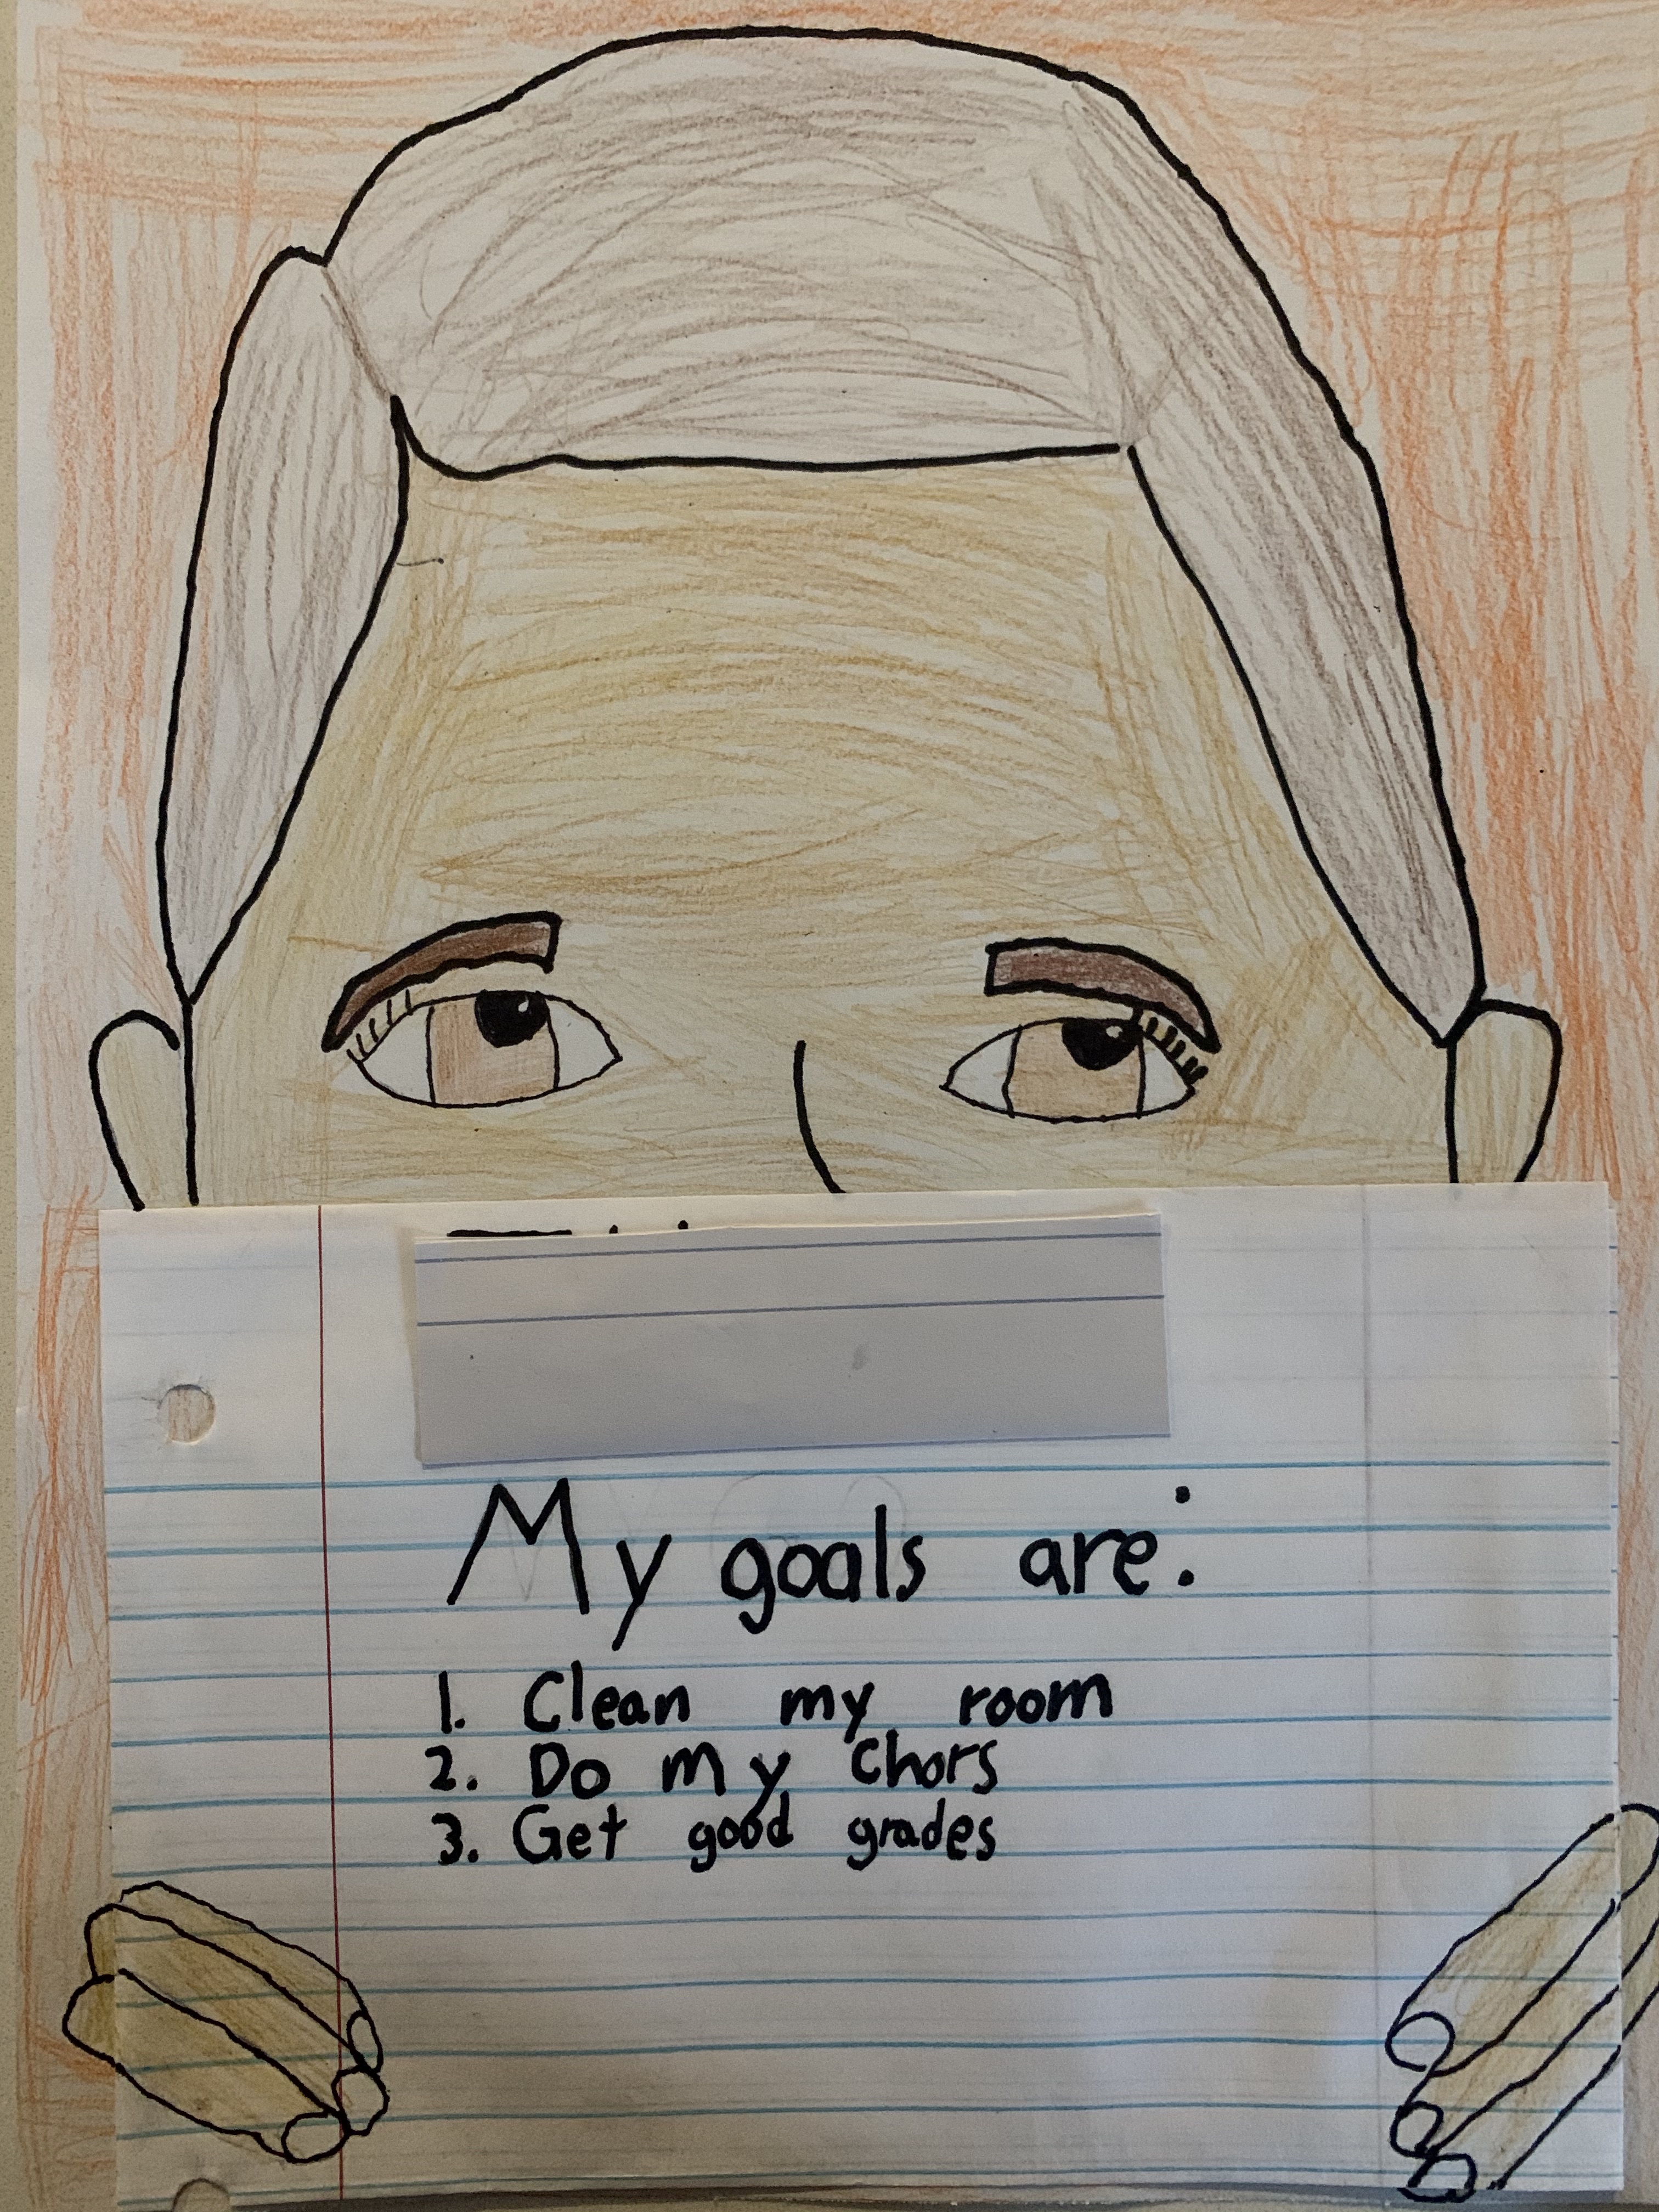 My goals are:
1. Clean my room
2. Do my chors
3. Get good grades